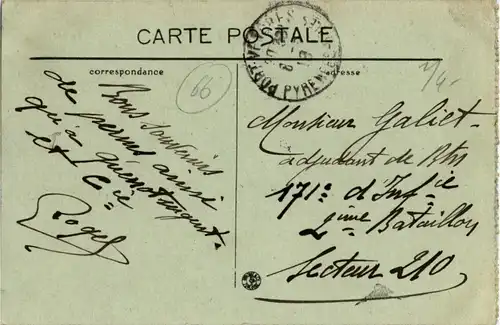 CARTE POSTALE
PORT-VENDRES PYRENEES
correspondance
adresse
66
Bons souvenirs
de
ainsi
qu'à
et Cie
Roger
Monsieur Galiet
adjudant de Btn
171e d'Infie
2ème Bataillon
Secteur 210